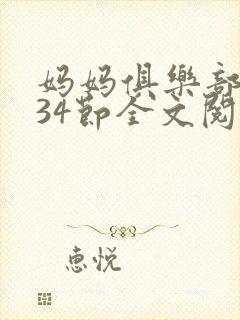 妈妈俱樂部
34節全文閱
惠悦